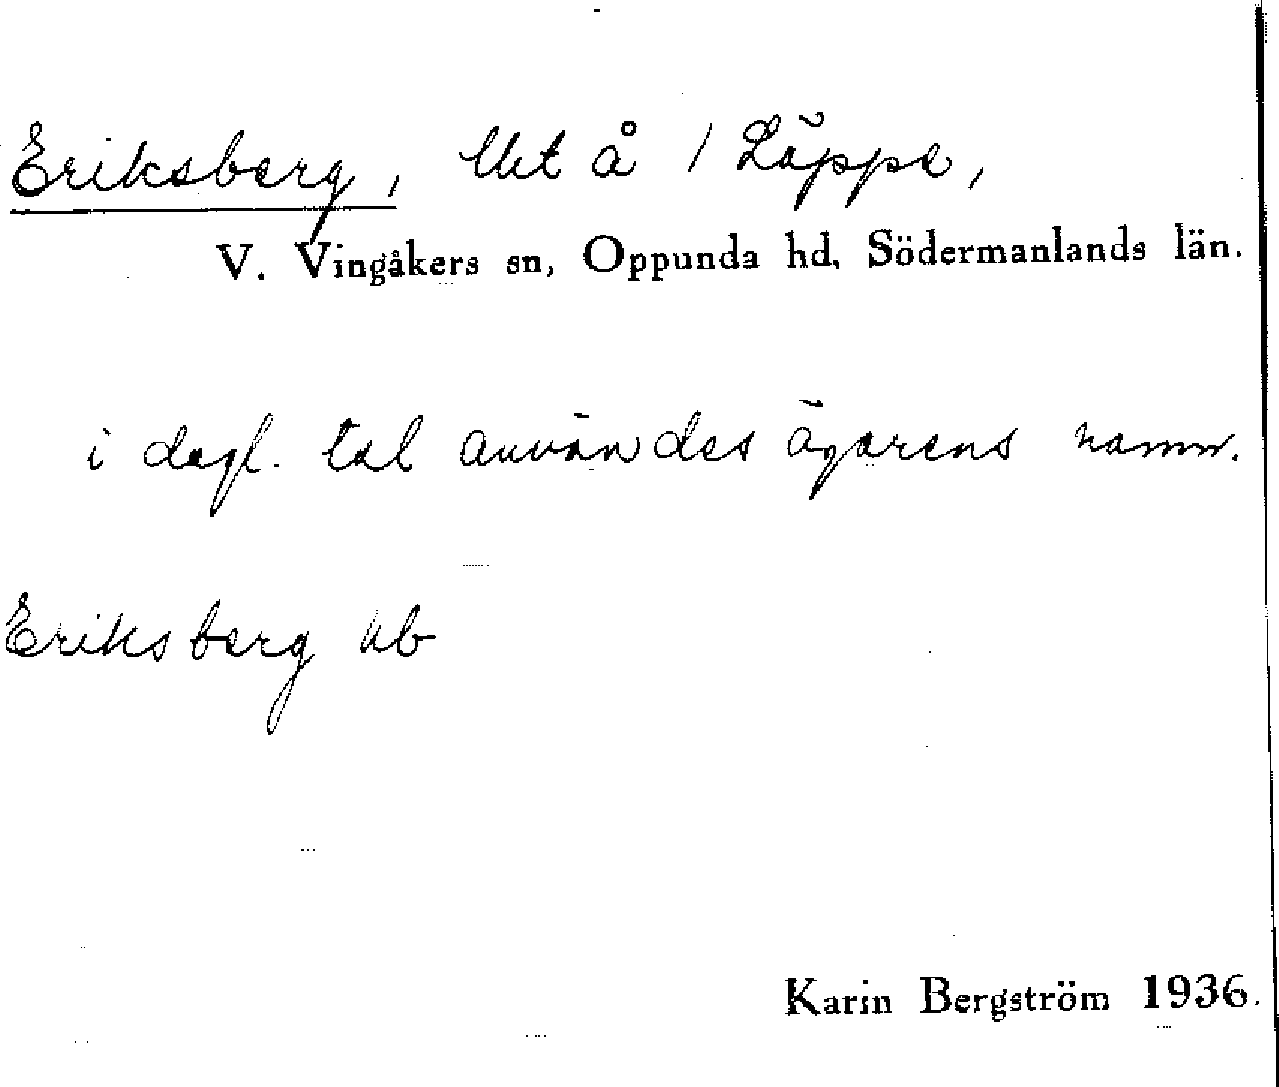 Eriksberg, lht å 1 Läppe,
V. Vingåkers sn, Oppunda hd, Södermanlands län.
i dagl. tal användes ägarens namn.
Eriksberg kb
Karin Bergström 1936.